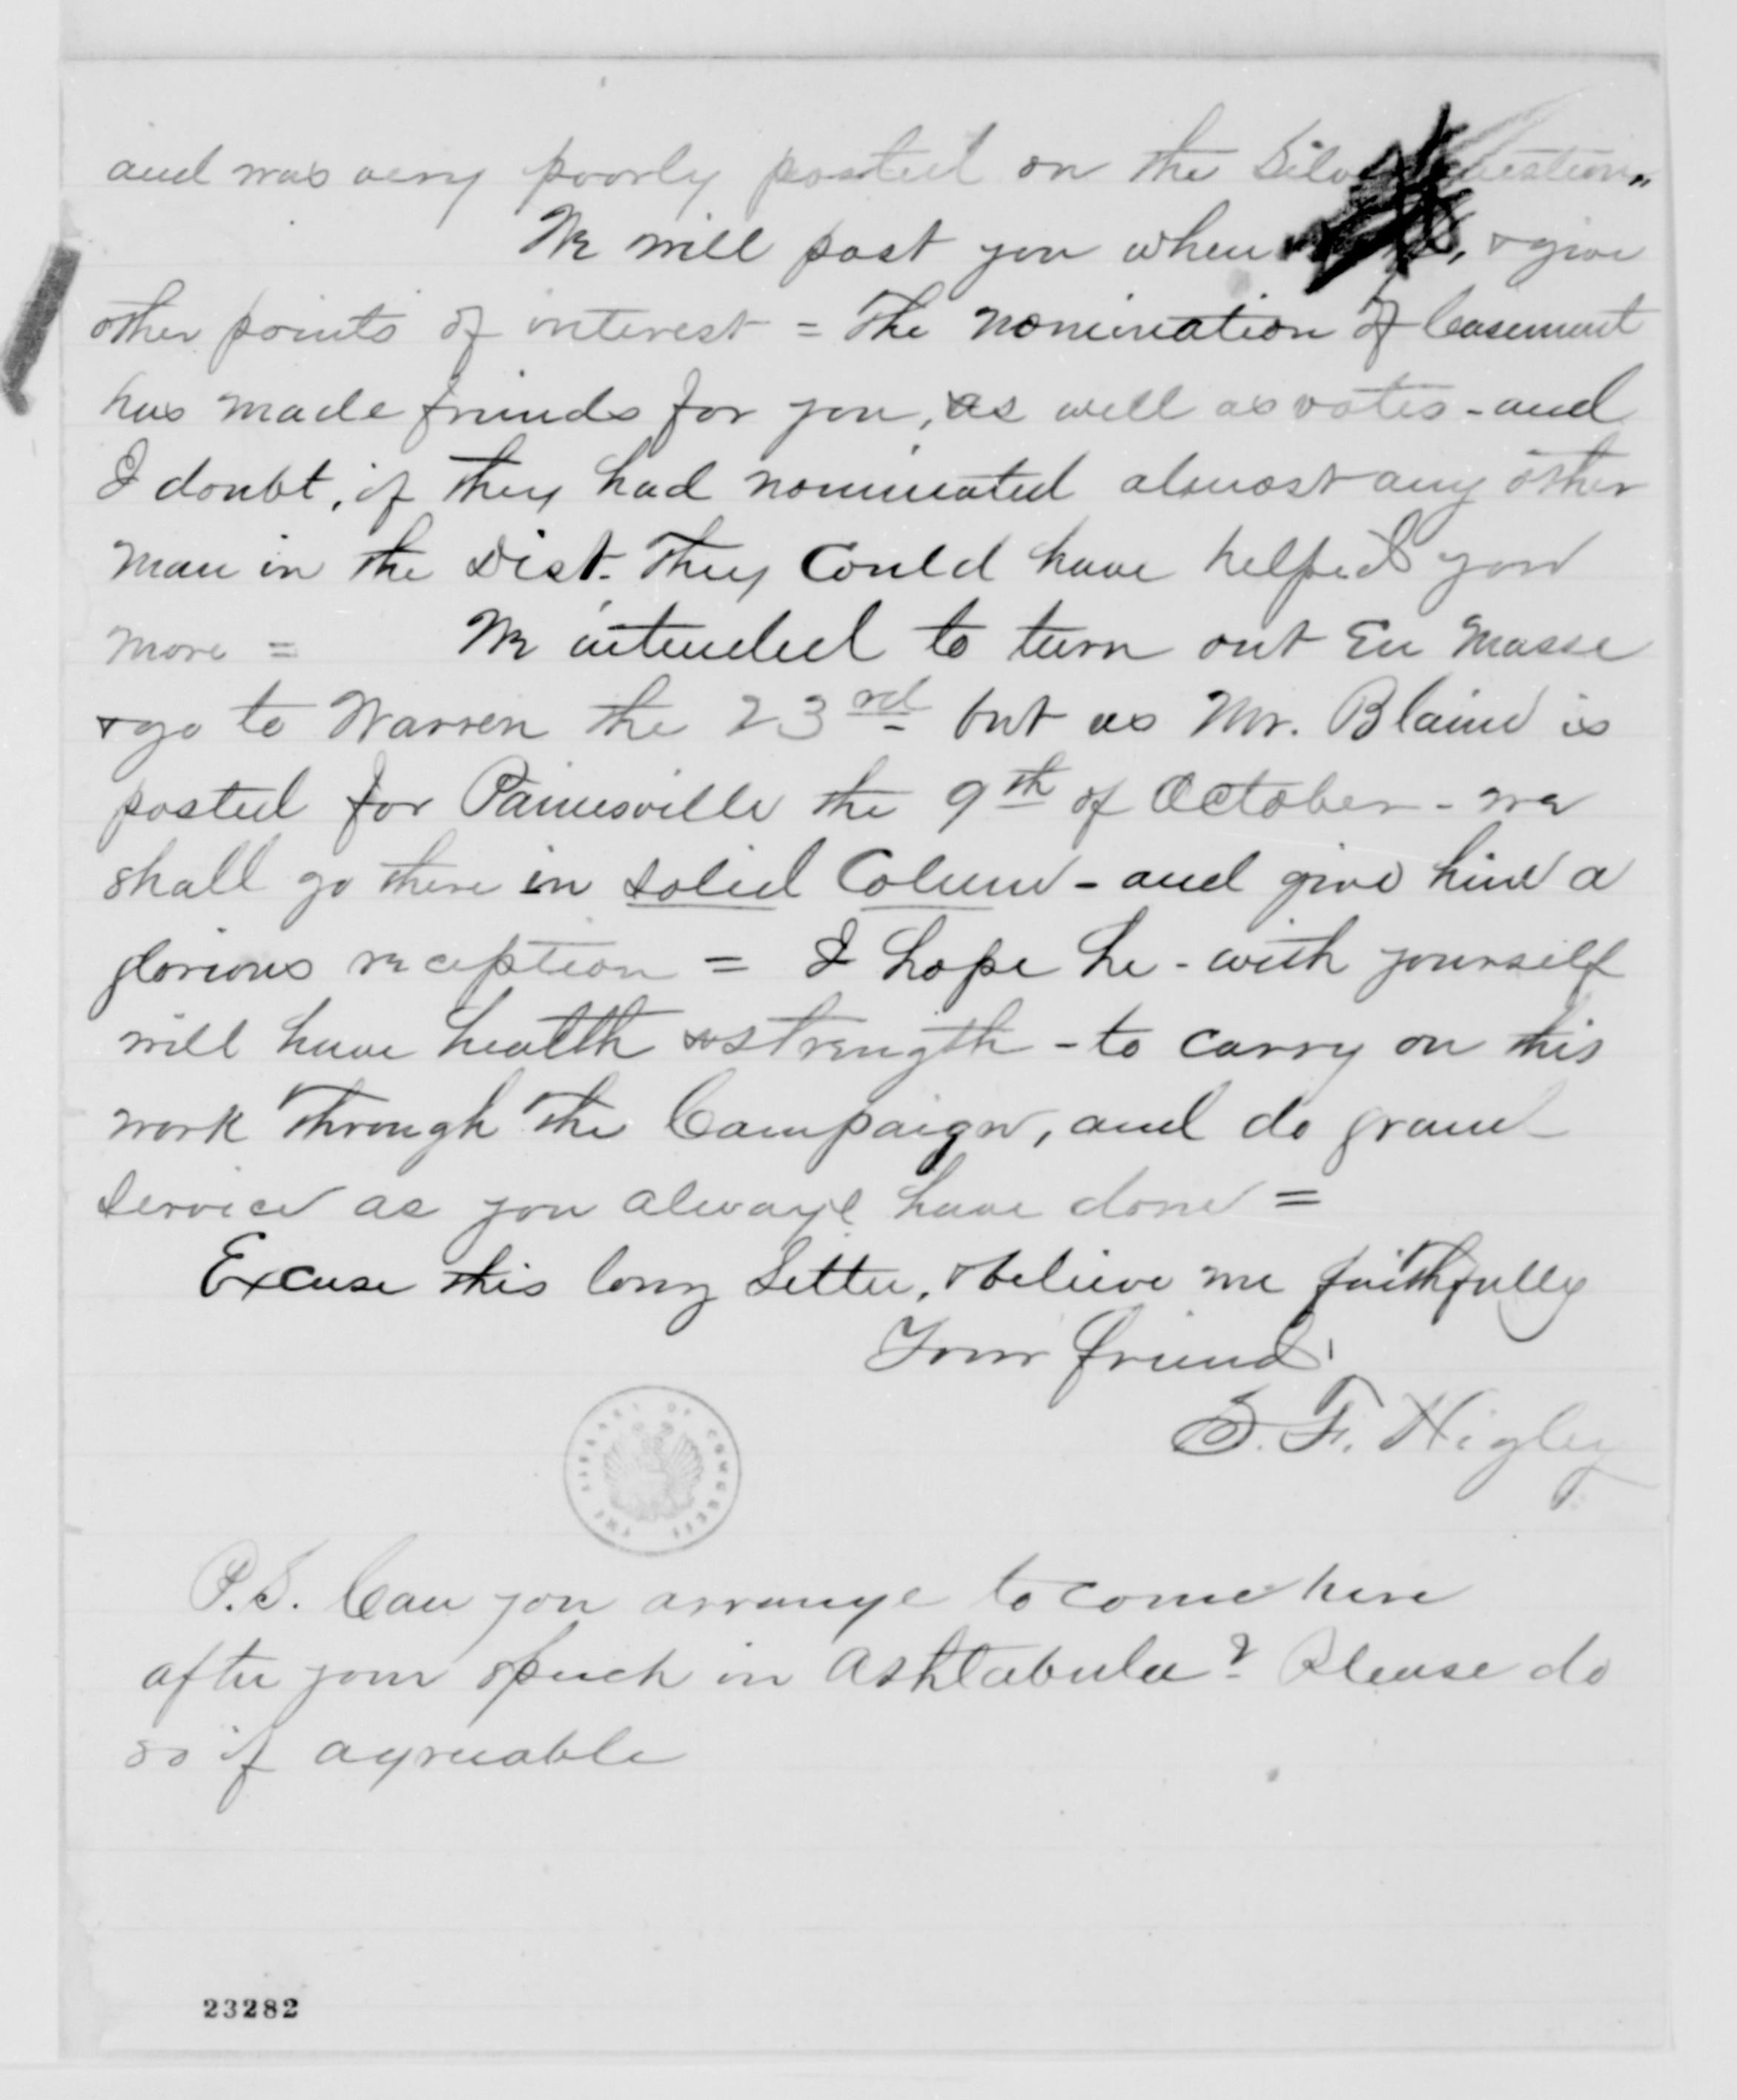 and was very poorly posted on the Silver question"
We will post you when , & give
other points of interest = The nomination of Casement
has made friends for you, as well as votes - and
I doubt, if they had nominated almost any other
man in the Dist. They Could have helped you
more = We intended to turn out En Masse
& go to Warren the 23rd but as Mr. Blaine is
posted for Painesville the 9th of October - we
shall go there in solid Column - and give him a
glorious reception = I hope he - with yourself
will have health & strength - to carry on this
work through the Campaign, and do grand
service as you always have done =
Excuse this long letter, & believe me faithfully
Your friend
S. F. Higley
THE LIBRARY OF CONGRESS
P.S. Can you arrange to come here
after your speech in Ashtabula? Please do
so if agreeable
23282